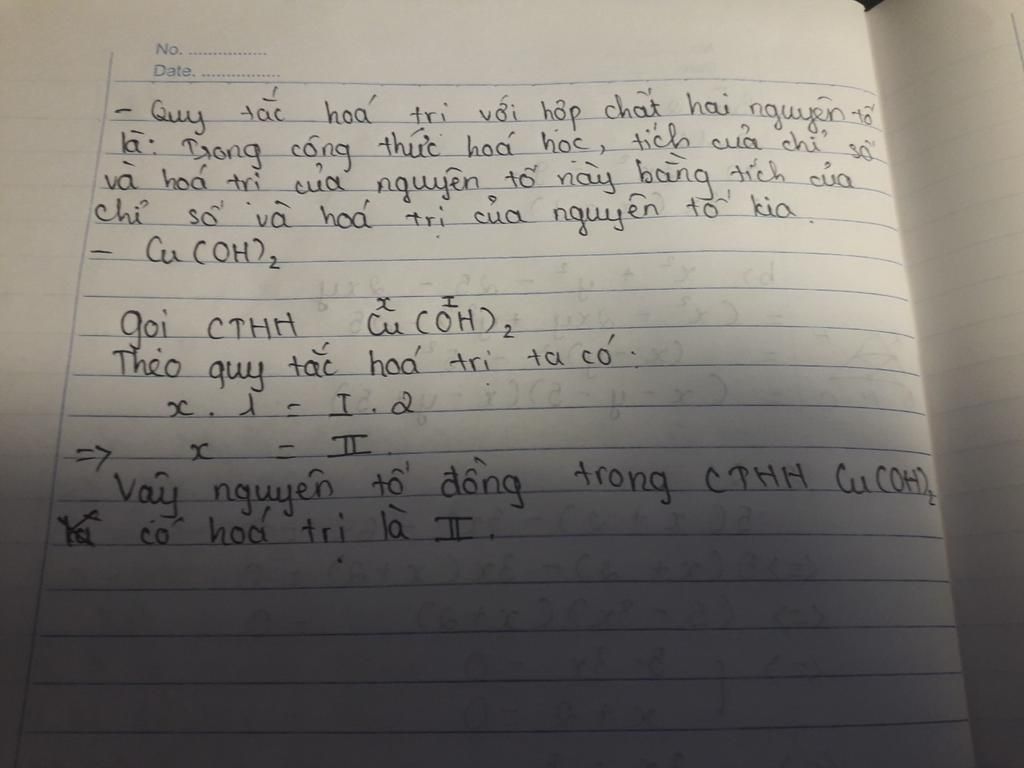 No. ................
Date. ................
- Quy tắc hoá trị với hợp chất hai nguyên tố
là: Trong công thức hoá học, tích của chỉ số
và hoá trị của nguyên tố này bằng tích của
chỉ số và hoá trị của nguyên tố kia.
- Cu(OH)₂
x I
gọi CTHH Cu(OH)₂
Theo quy tắc hoá trị ta có:
x . 1 = I . 2
=> x = II
Vậy nguyên tố đồng trong CTHH Cu(OH)₂
có hoá trị là II.